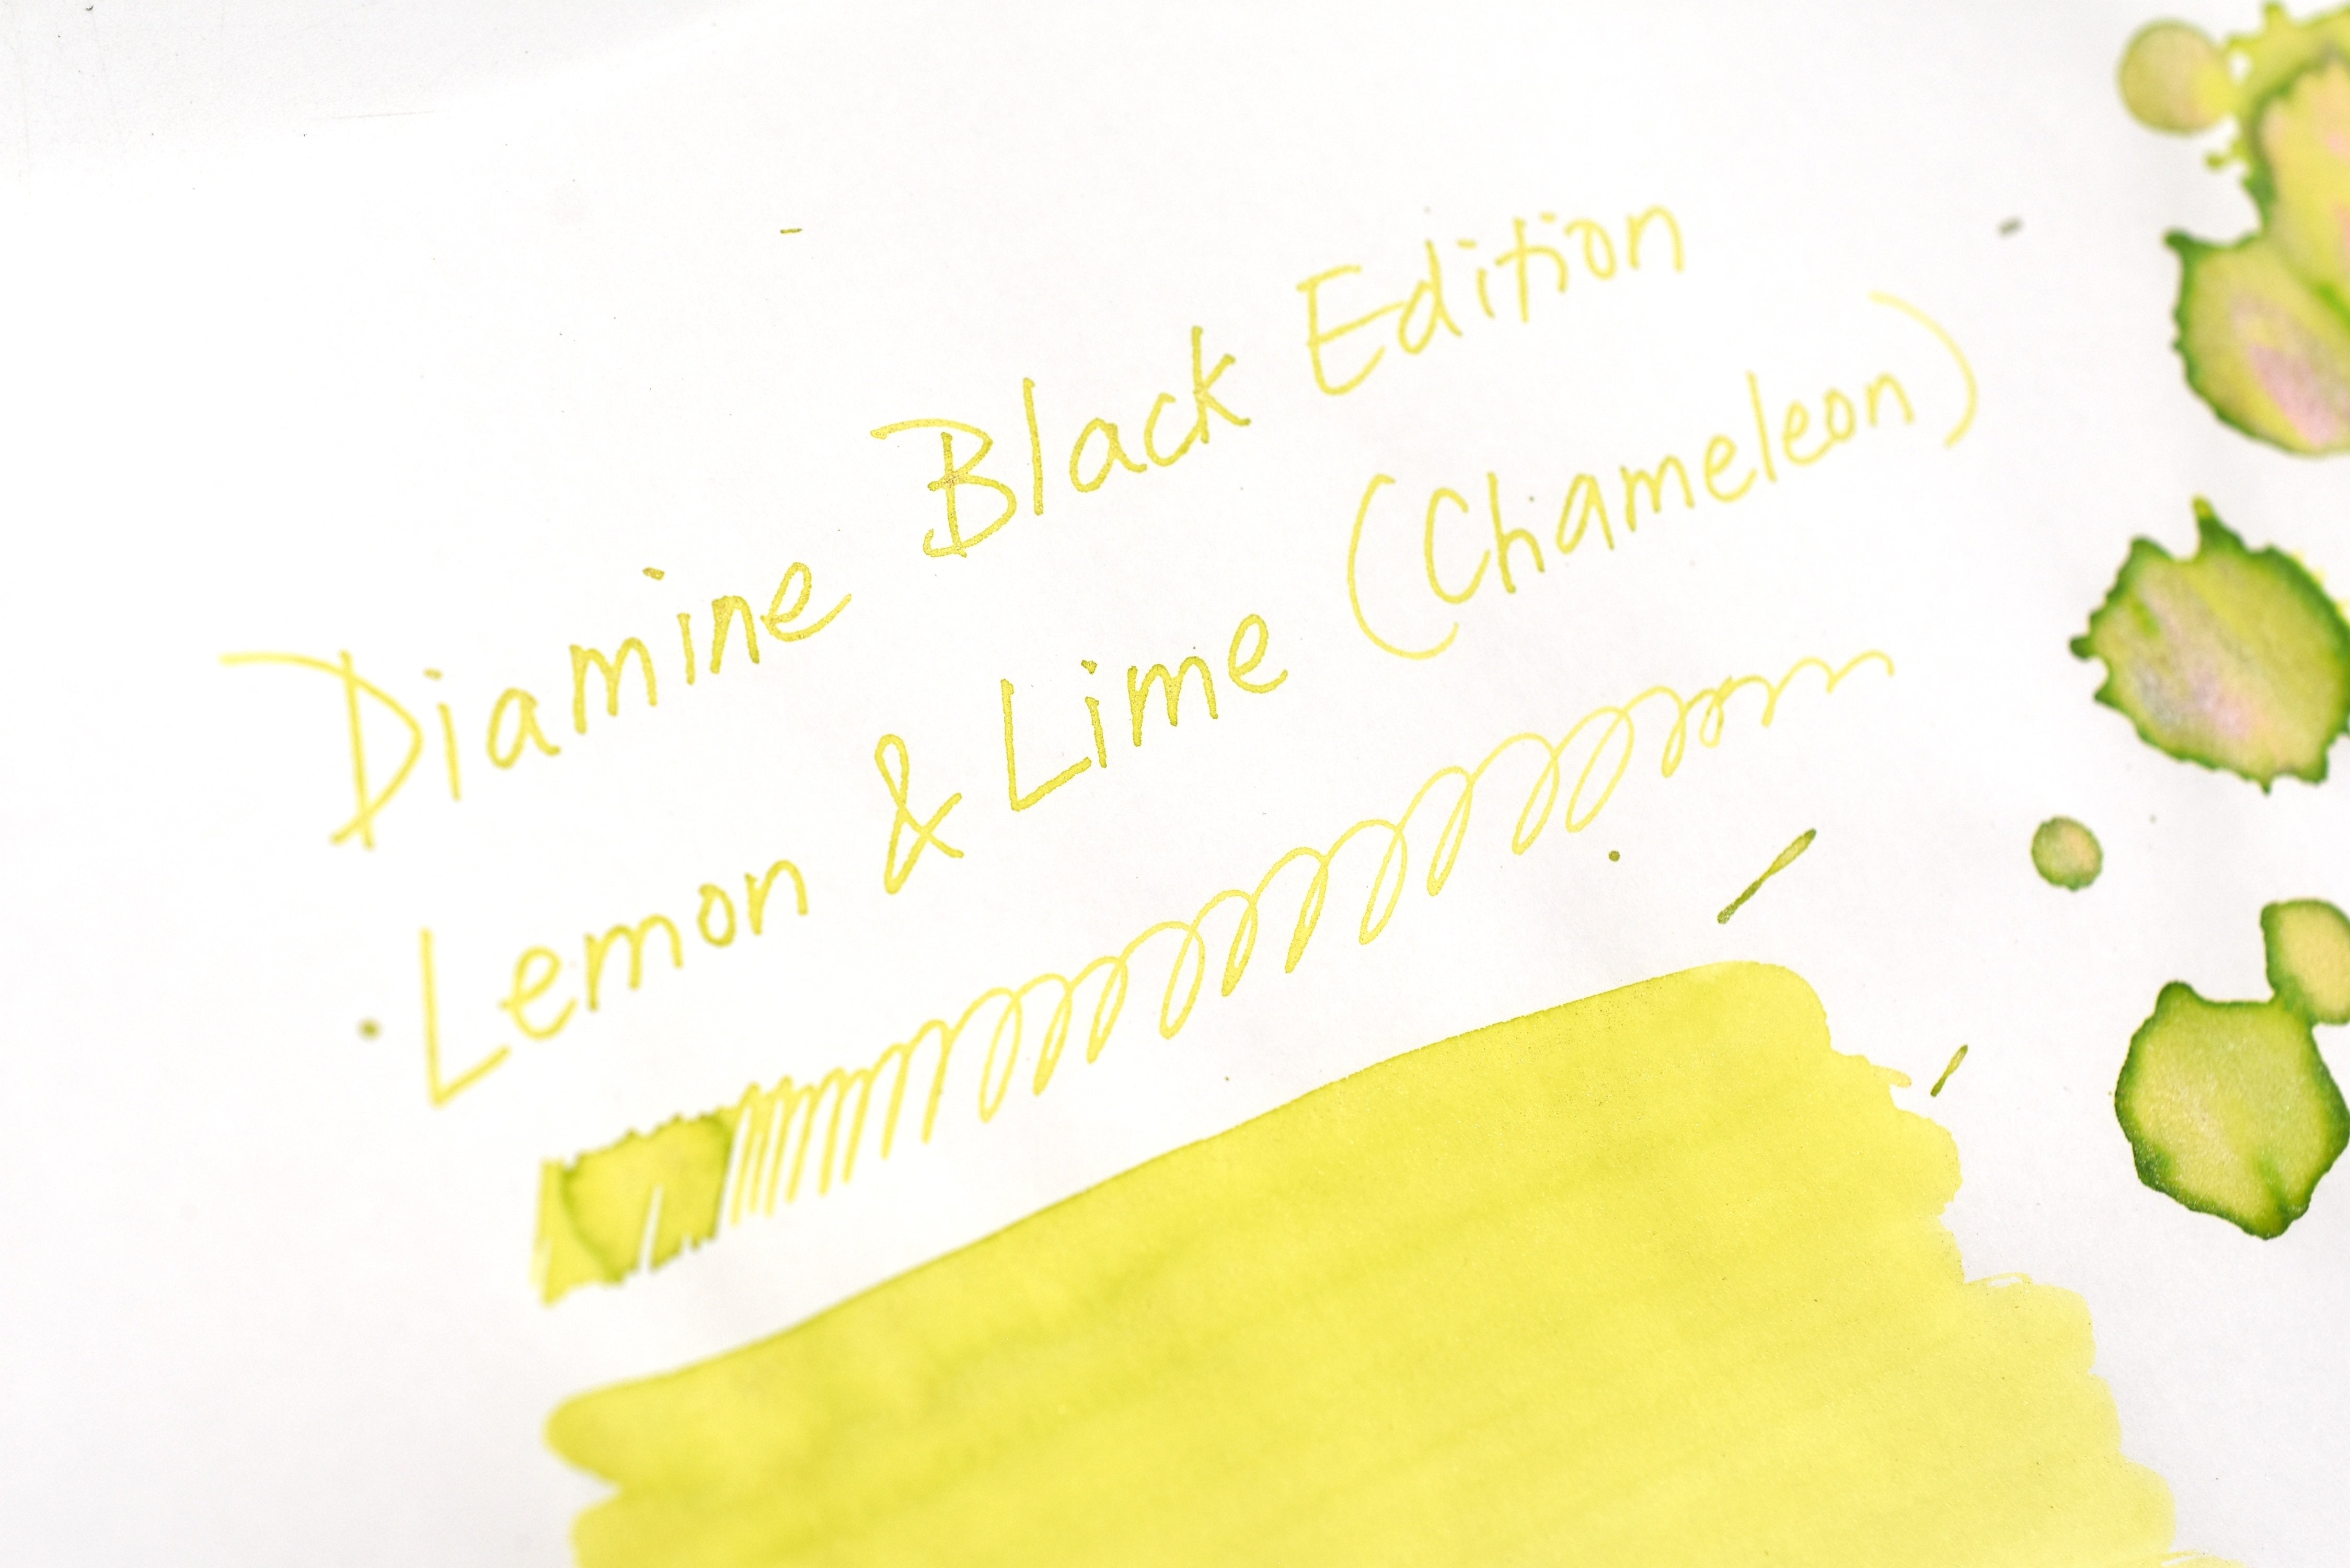 Diamine Black Edition
Lemon & Lime (Chameleon)